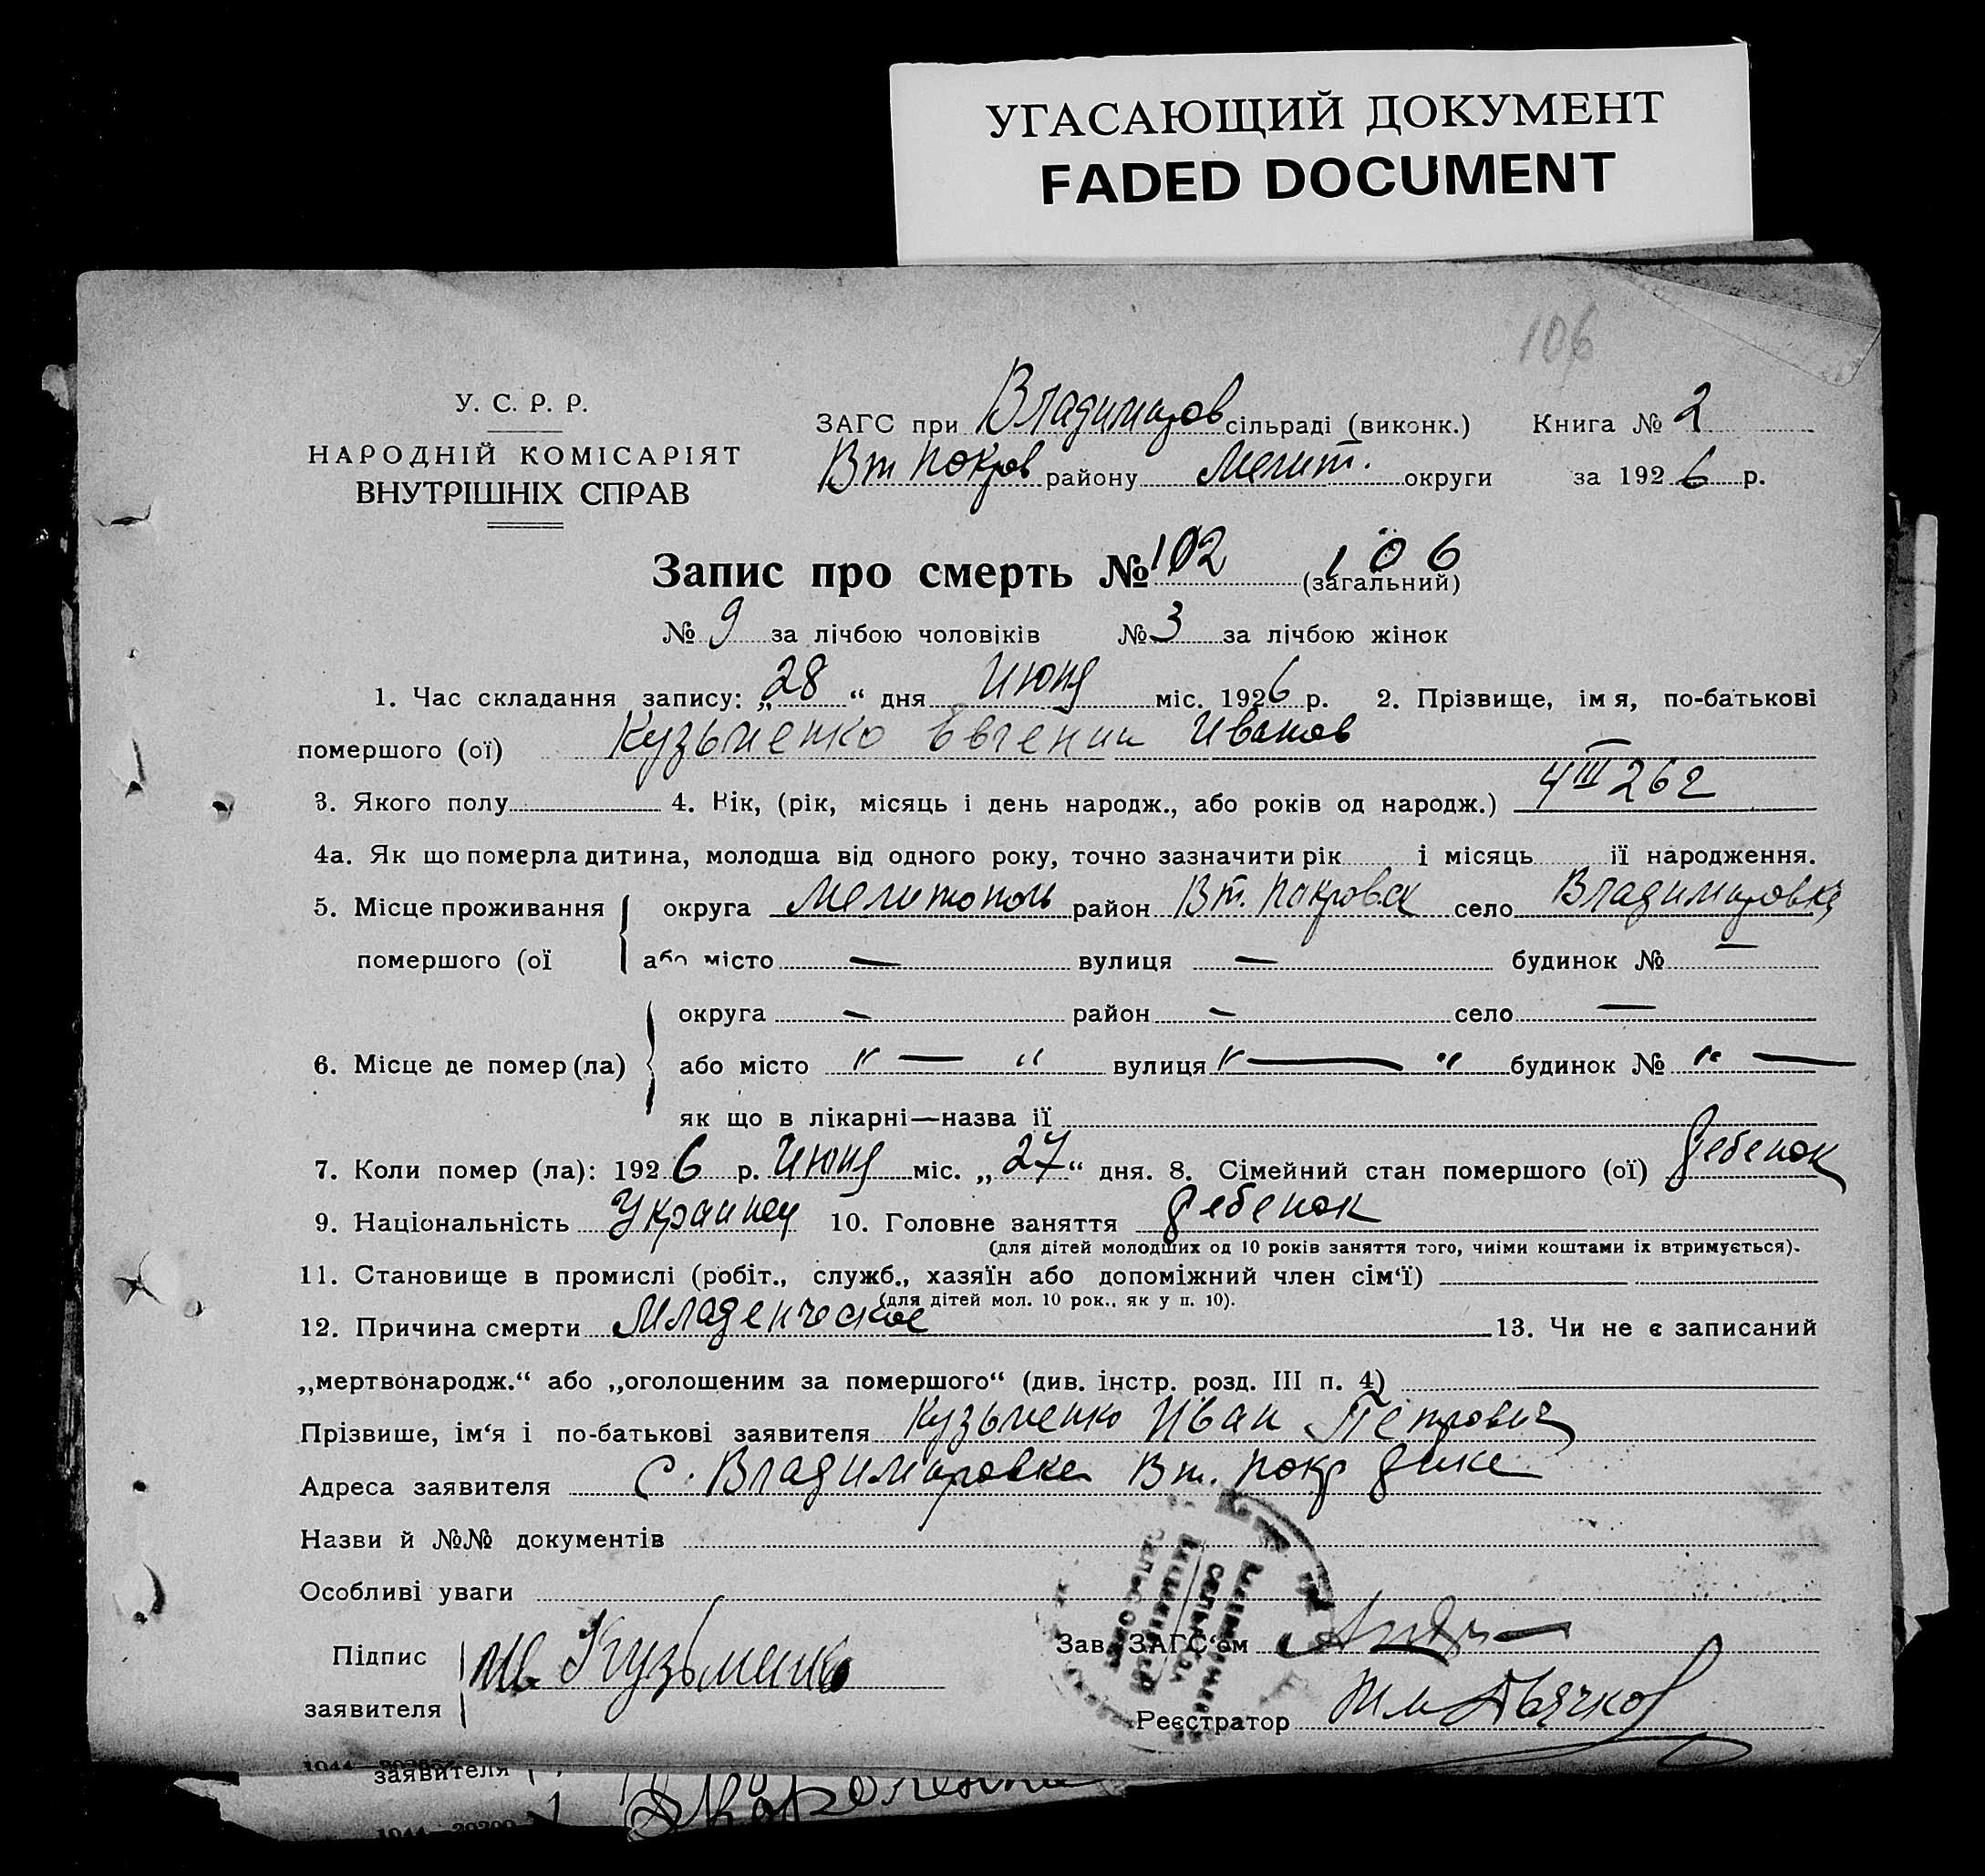 УГАСАЮЩИЙ ДОКУМЕНТ
FADED DOCUMENT
106
У. С. Р. Р.
НАРОДНІЙ КОМІСАРІЯТ
ВНУТРІШНІХ СПРАВ
ЗАГС при Владимиров сільраді (виконк.) Книга № 2
Вт Покров району Мелит. округи за 1926 р.
Запис про смерть № 102 106 (загальний)
№ 9 за лічбою чоловіків № 3 за лічбою жінок
1. Час складання запису: „28“ дня Июня міс. 1926 р. 2. Прізвище, імя, по-батькові
помершого (ої) Кузьменко Евгений Иванов
3. Якого полу 4. Вік, (рік, місяць і день народж., або років од народж.) 4 III 26 г
4а. Як що померла дитина, молодша від одного року, точно зазначити рік і місяць її народження.
5. Місце проживання округа Мелитополь район Вт. Покровск село Владимировка
помершого (ої або місто — вулиця — будинок № —
округа — район — село —
6. Місце де помер (ла) або місто " — " вулиця " — " будинок № " —
як що в лікарні—назва її
7. Коли помер (ла): 1926 р. Июня міс. „27“ дня. 8. Сімейний стан помершого (ої) ребенок
9. Національність Украинец 10. Головне заняття ребенок
(для дітей молодших од 10 років заняття того, чиїми коштами їх втримується).
11. Становище в промислі (робіт., служб., хазяїн або допоміжний член сім‘ї)
(для дітей мол. 10 рок., як у п. 10).
12. Причина смерти Младенческое 13. Чи не є записаний
„мертвонародж.“ або „оголошеним за помершого“ (див. інстр. розд. III п. 4)
Прізвише, ім‘я і по-батькові заявителя Кузьменко Иван Петрович
Адреса заявителя с. Владимировка Вт. Покр
Назви й №№ документів
Особливі уваги
Підпис Ив Кузьменко Зав. ЗАГС‘ом
заявителя Реєстратор Дьячков
заявителя